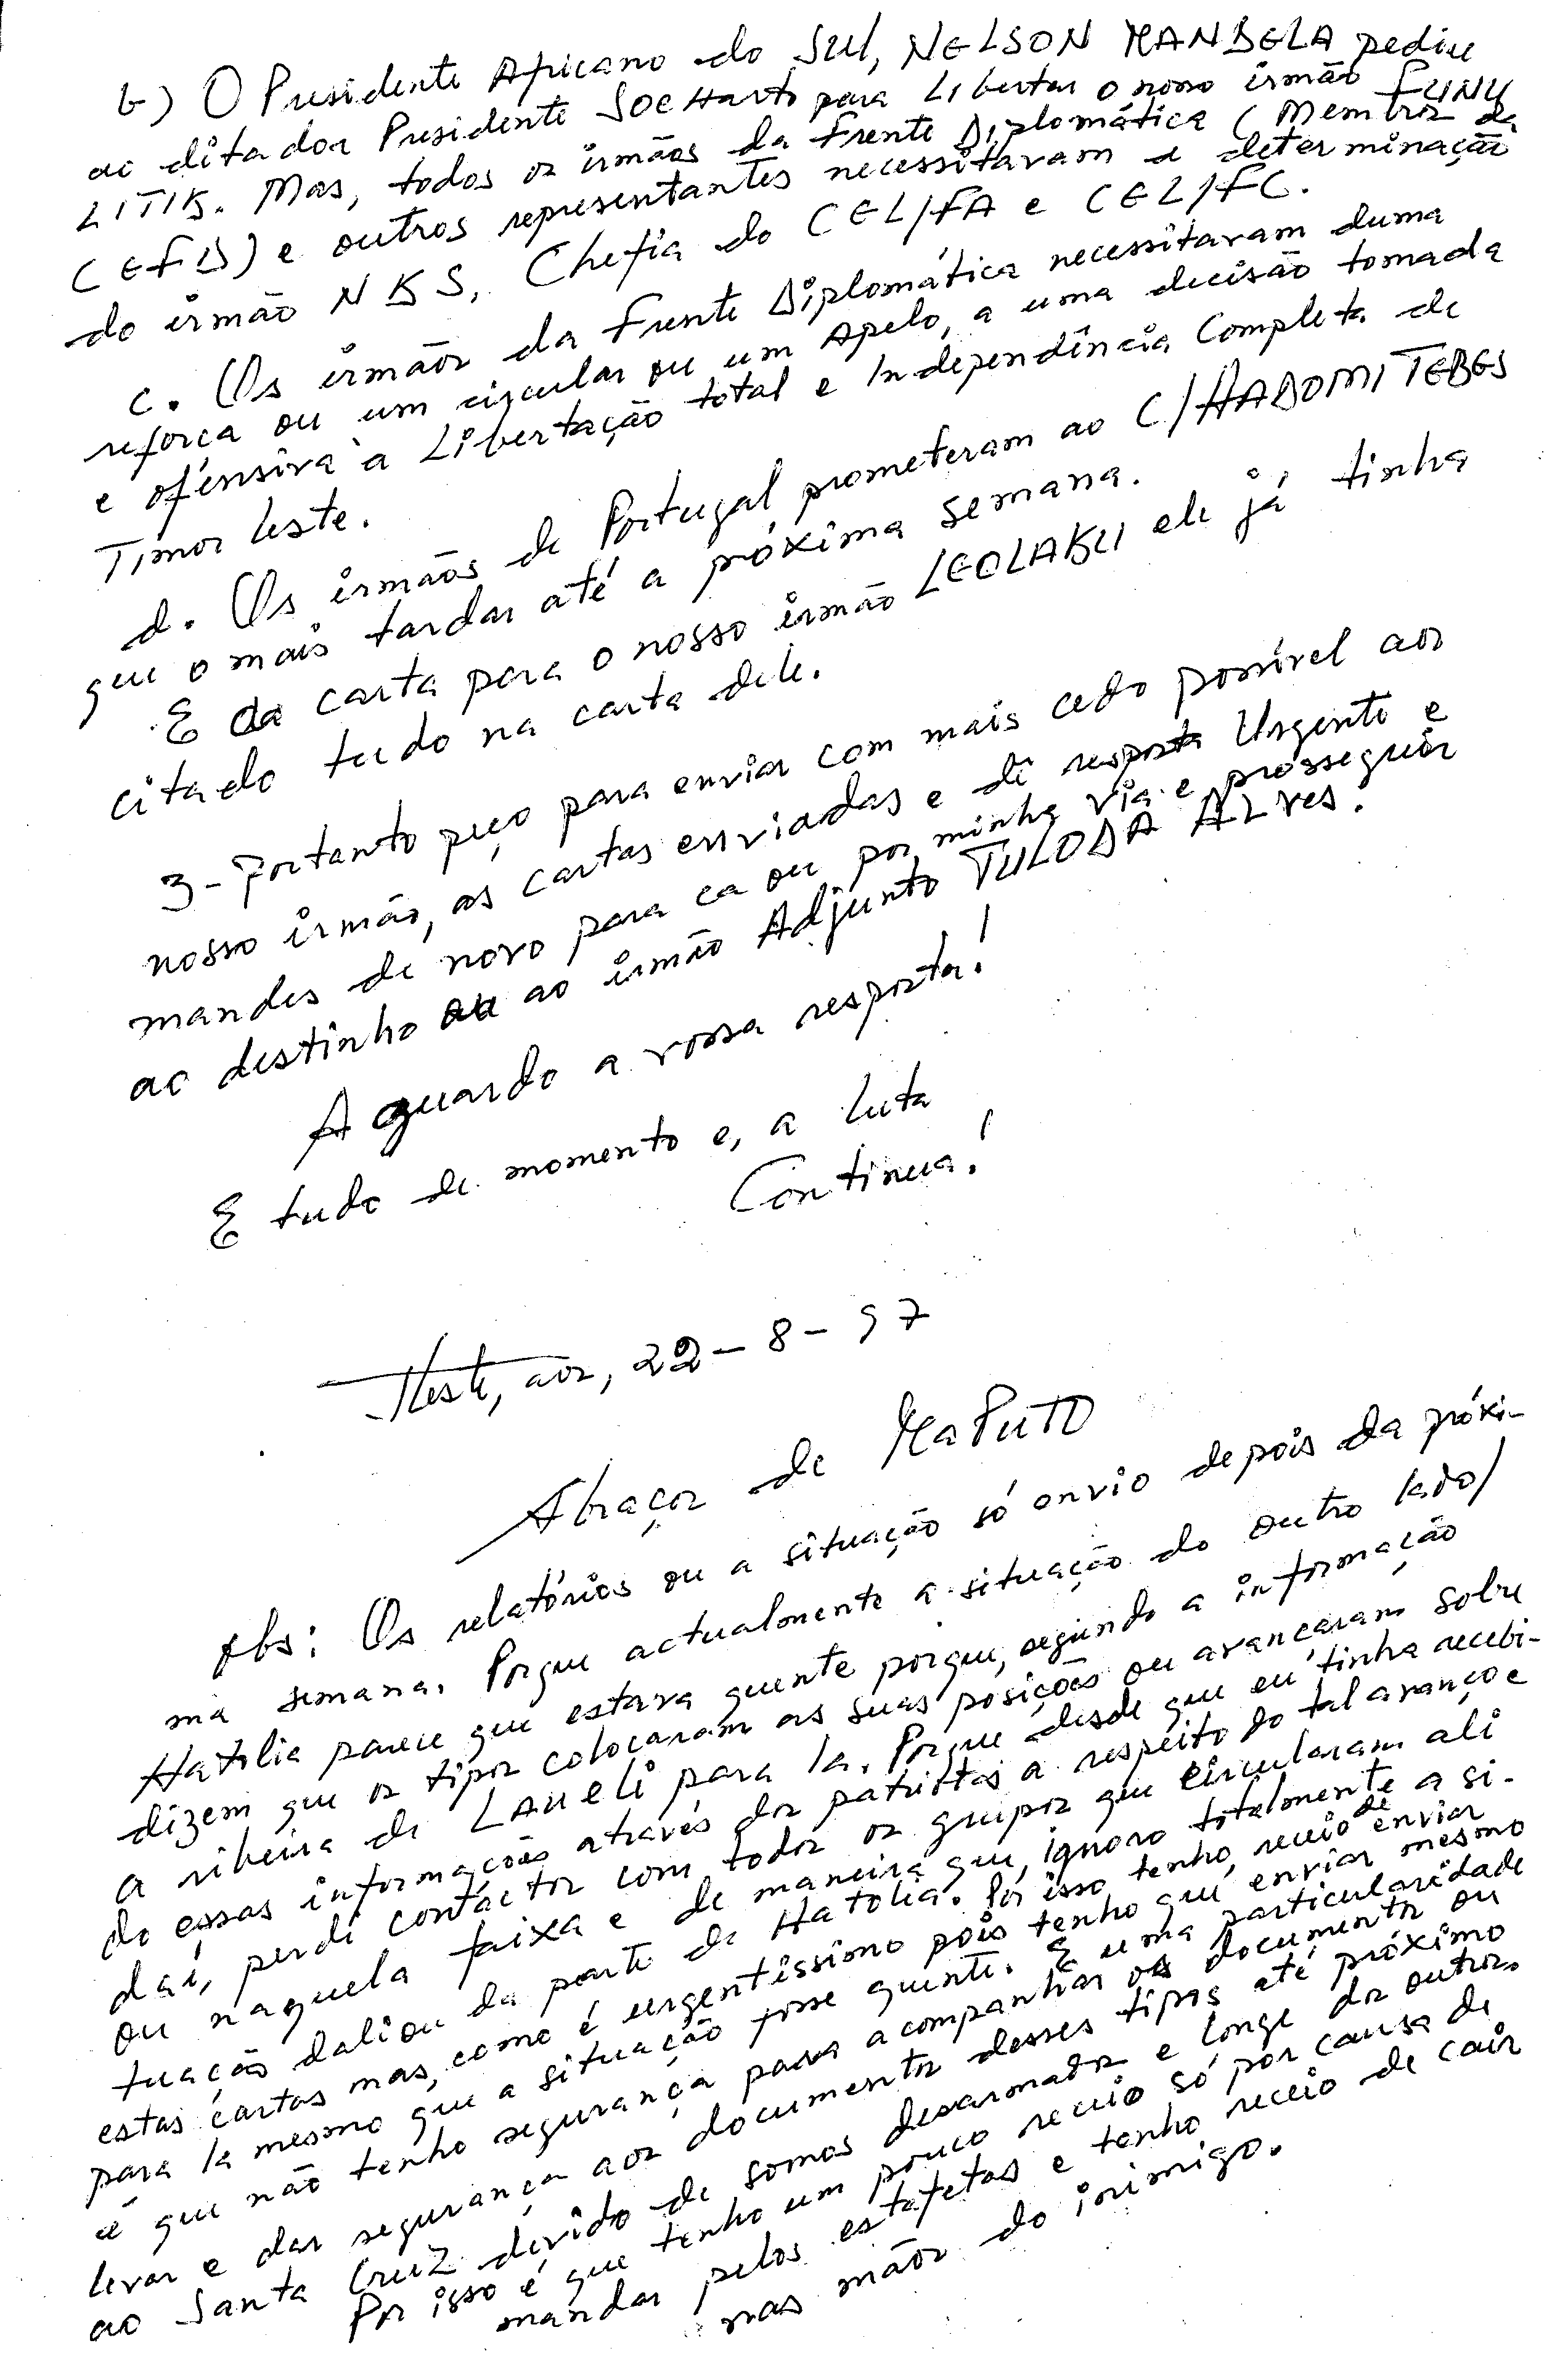 b) O Presidente Africano do Sul, NELSON MANDELA pediu
ao ditador Presidente Soeharto para Libertar o nosso irmão FUNU
LITIK. Mas, todos os irmãos da Frente Diplomática (Membros da
CEFD) e outros representantes necessitavam a determinação
do irmão NKS, Chefia do CEL/FA e CEL/FC.
c. Os irmãos da Frente Diplomática necessitavam duma
reforça ou um circular ou um Apelo, a uma decisão tomada
e ofensiva à Libertação total e Independência Completa de
Timor Leste.
d. Os irmãos de Portugal prometeram ao C/HADOMI TEBES
que o mais tardar até a próxima semana.
E da carta para o nosso irmão LEOLAKU ele já tinha
citado tudo na carta dele.
3- Portanto peço para enviar com mais cedo possível aos
nosso irmão, as cartas enviadas e dê resposta Urgente e
mandes de novo para ca ou por minha via e prosseguir
ao destinho ou ao irmão Adjunto TULODA ALves.
Aguardo a vossa resposta!
E tudo de momento e, a Luta
Continua!
Jleste, aos, 22-8-97
Abraços de MaPutO
Obs: Os relatórios ou a situação só envio depois da próxi-
ma semana. Porque actualmente a situação do outro lado/
Hatolia parece que estava quente porque, segundo a informação
dizem que os tipos colocaram as suas posições ou avançaram sobre
a ribeira de LAUELi para la. Porque desde que eu tinha recebi-
do essas informações através dos patriotas a respeito do tal avanço e
daí, perdi contactos com todos os grupos que circularam ali
ou naquela faixa e de maneira que, ignoro totalmente a si-
tuação dali ou da parte de Hatolia. Por isso tenho receio de enviar
estas cartas mas, como é urgentíssimo pois tenho que enviar mesmo
para la mesmo que a situação fosse quente. E uma particularidade
é que não tenho segurança para acompanhar os documentos ou
levar e dar segurança aos documentos desses tipos até próximo
ao Santa Cruz devido de somos desarmados e longe dos outros.
Por isso é que tenho um pouco receio só por causa de
mandar pelos estafetas e tenho receio de cair
nas mãos do inimigo.